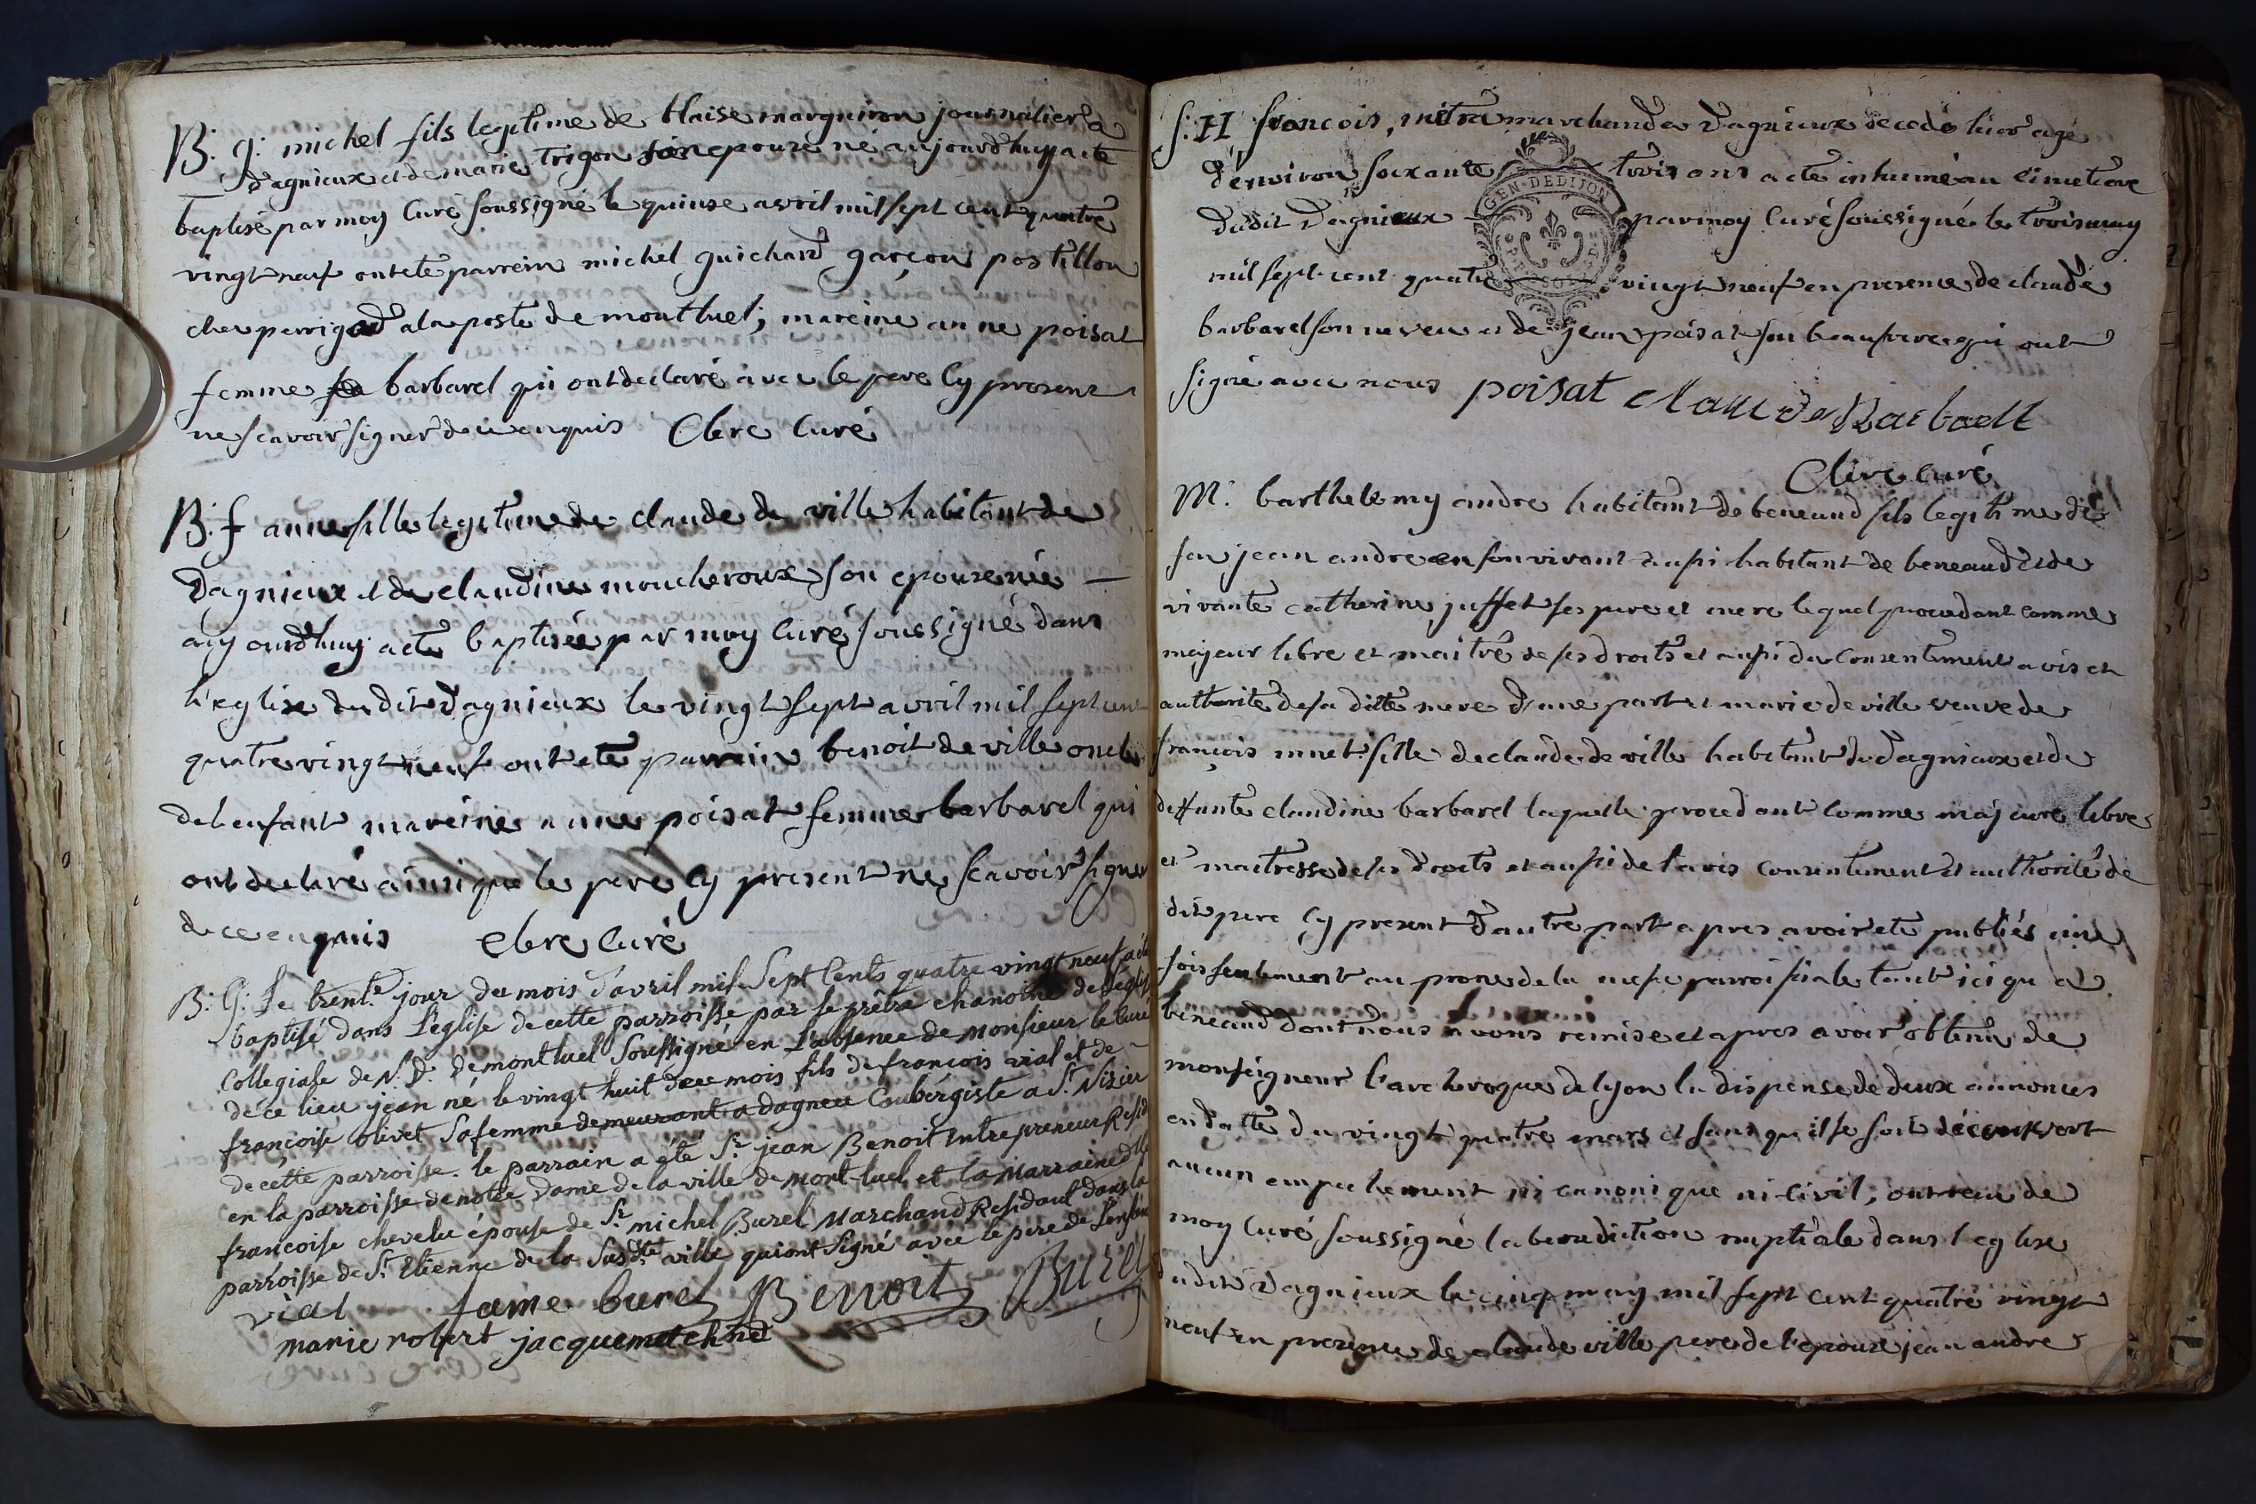 B: g: michel fils legitime de blaise marguiron journalier a
d'agnieux et de marie trigon son epouze né aujourd'huy a eté
baptisé par moy Curé soussigné le quinze avril mil sept cent quatre
vingt neuf ont eté parrein michel guichard garçon postillon
chez perrigod a la poste de montluel; mareine anne poisat
femme barbarel qui ont declaré avec le pere Cy present
ne scavoir signer de ce enquis Clere Curé
B: f anne fille legitime de claude de ville habitant de
Dagnieux et de claudine moucheroux son epouze née
aujourd'huy a eté baptisée par moy Curé soussigné dans
l'eglise dudit Dagnieux le vingt sept avril mil sept cent
quatre vingt neuf ont eté parrain benoit de ville oncle
de l'enfant mareine anne poisat femme barbarel qui
ont declaré ainsi que le pere Cy present ne scavoir signer
de ce enquis Clere Curé
B: G: Le trent.e jour du mois d'avril mil Sept Cents quatre vingt neuf a été
baptisé dans L'église de cette parroisse par le prêtre chanoine de L'église
Collegiale de N. D. de montluel Soussigné en L'absence de Monsieur le Curé
de ce lieu jean né le vingt huit du mois fils de françois vial et de
françoise olivet Sa femme demeurant a dagneu Coubergiste a St. Nizier
de cette parroisse. le parrain a été Sr. jean Benoit Entrepreneur Resid
en la parroisse de notre Dame de la ville de Mont-luel et la Marraine dlle
françoise chevelu épouse de Sr. michel Burel Marchand Residant dans la
parroisse de St. Etienne de la Susdte. ville qui ont Signé avec le pere de L'enfant
vial fame burel Benoit Burel
marie robert jacquemet chne
S: H françois, mitra marchand a Dagnieux decedé hier agé
d'environ soixante trois ans a eté inhumé au cimetiere
dudit Dagnieux par moy Curé soussigné le trois may
mil sept cent quatre vingt neuf en presence de claude
barbarel son neveu et de jean poisat son beaufrere qui ont
signé avec nous poisat claude Barbarell
Clere Curé
GEN. DE DIJON
M: barthelemy andre habitant de beneaud fils legitime de
feu jean andre en son vivant aussi habitant de beneaud et de
vivante catherine juffet ses pere et mere lequel procedant comme
majeur libre et maitre de ses droits et aussi du Consentement avis et
authorité de sa ditte mere d'une part et marie de ville veuve de
françois minet fille de claude de ville habitant de Dagnieux et de
deffunte claudine barbarel laquelle procedant comme majeure libre
et maitresse de ses droits et aussi de l'avis consentement et authorité de
dit pere Cy present d'autre part apres avoir eté publiés une
fois seulement au prone de la messe parroissiale tant ici qu'a
beneaud dont nous avons remise et apres avoir obtenu de
monseigneur l'archevoque de lyon la dispense de deux annonces
en datte du vingt quatre mars et sans qu'il se soit découvert
aucun empechement ni canonique ni civil, ont recu de
moy Curé soussigné la benediction nuptiale dans l'eglise
dudit Dagnieux le cinq may mil sept cent quatre vingt
neuf en presence de claude ville pere de l'epouze jean andre